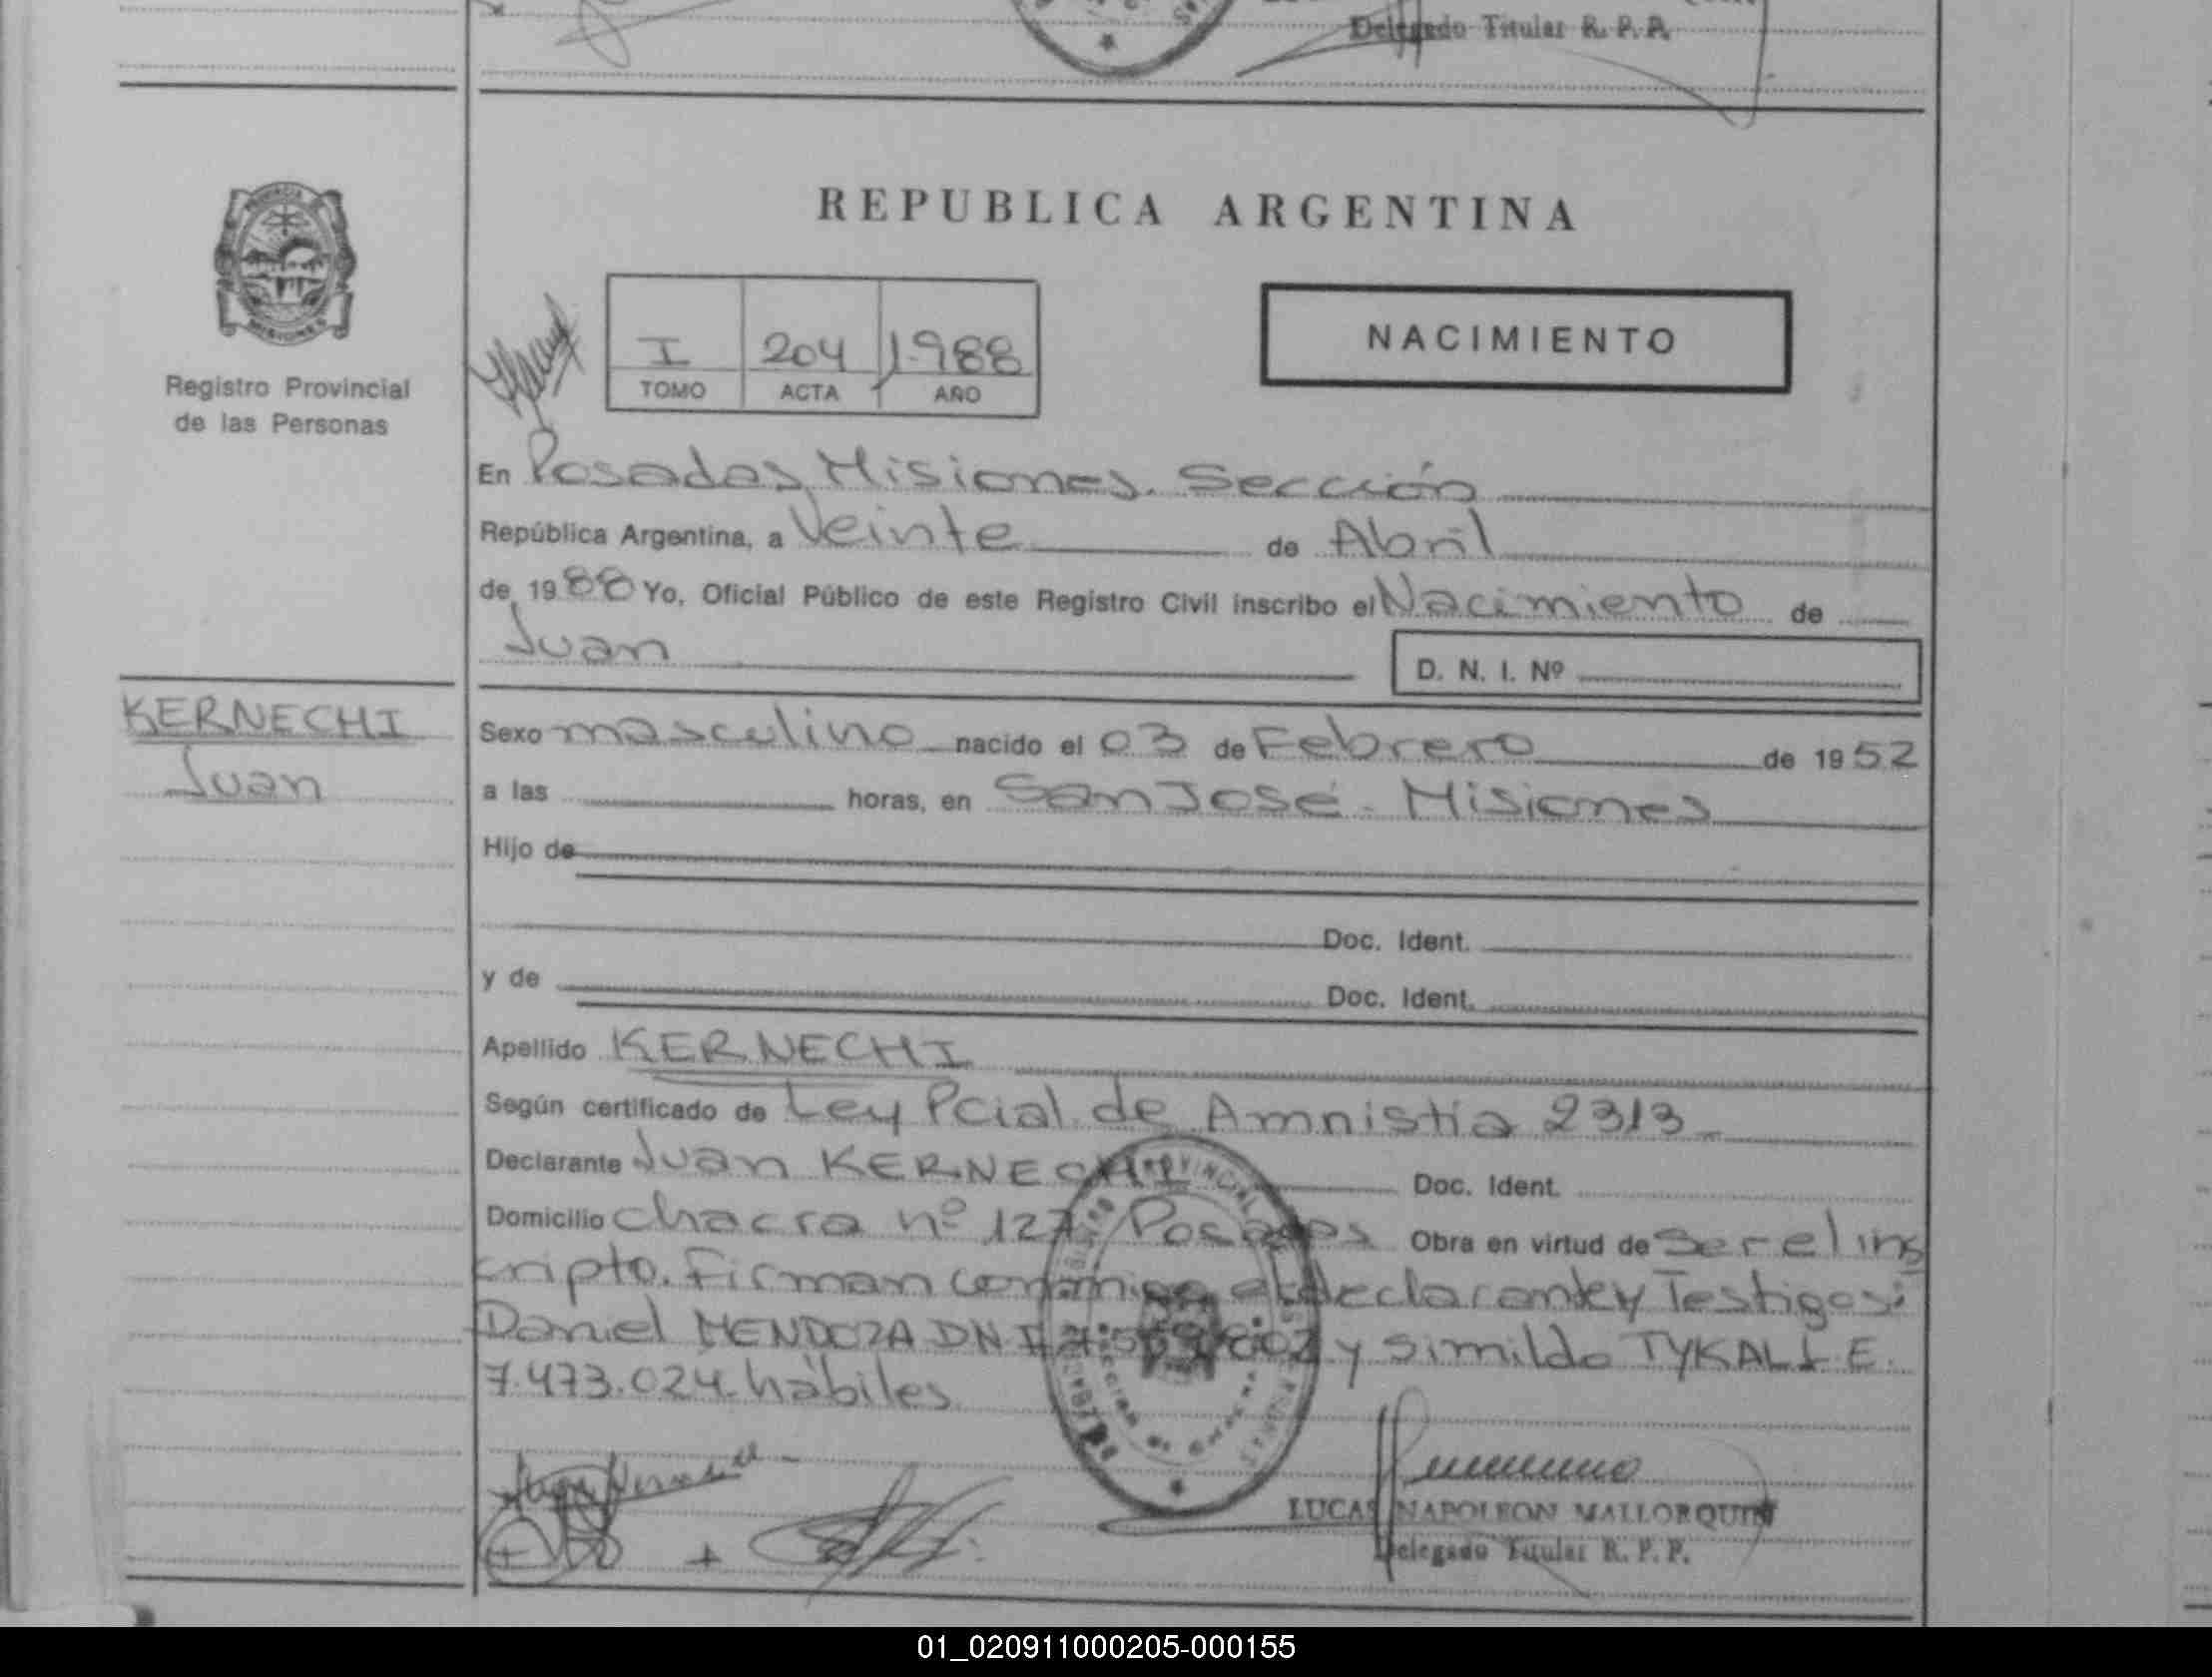 Delegado Titular R. P. P.
REPUBLICA ARGENTINA
Registro Provincial
de las Personas
I 204 1988
TOMO ACTA AÑO
NACIMIENTO
En Posadas, Misiones. Sección
República Argentina, a Veinte de Abril
de 1988 Yo, Oficial Público de este Registro Civil inscribo el Nacimiento de
Juan
D. N. I. Nº
KERNECHI
Juan
Sexo masculino nacido el 03 de Febrero de 1952
a las horas, en San José - Misiones
Hijo de
Doc. Ident.
y de Doc. Ident.
Apellido KERNECHI
Según certificado de Ley Pcial de Amnistía 2313
Declarante Juan KERNECHI Doc. Ident.
Domicilio chacra nº 127 Posadas Obra en virtud de Ser el ins
cripto. Firman conmigo el declarante y Testigos:
Daniel MENDOZA DNI y Simildo TYKAL L E.
7.473.024 hábiles
LUCAS NAPOLEON MALLORQUIN
Delegado Titular R. P. P.
01_020911000205-000155